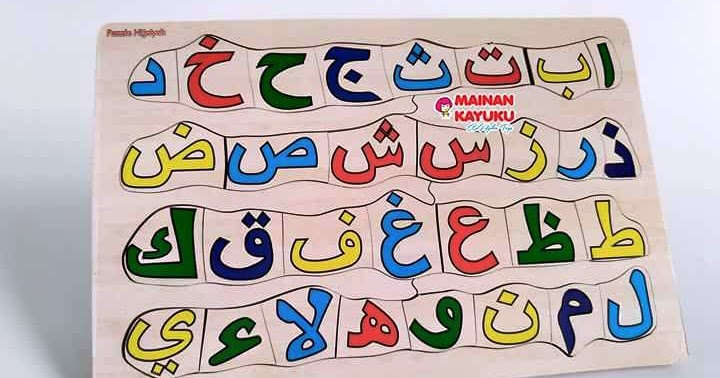 Puzzle Hijaiyah
ا ب ت ث ج ح خ د
MAINAN
KAYUKU
ذ ر ز س ش ص ض
ط ظ ع غ ف ق ك
ل م ن و ه لا ء ي